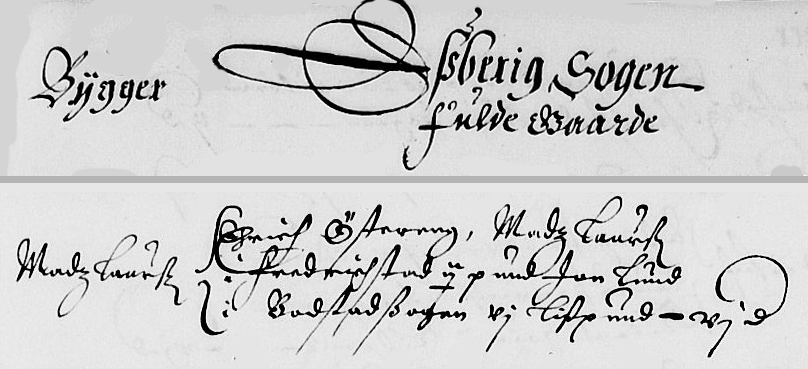 Bÿgger
Sogen
fulde Gaarde
Madz Laurß
Erich Østereng, Madz Laurß
i Fredrichstad pund Jon Lund
i Bodstadßogen vj lispund – vj d